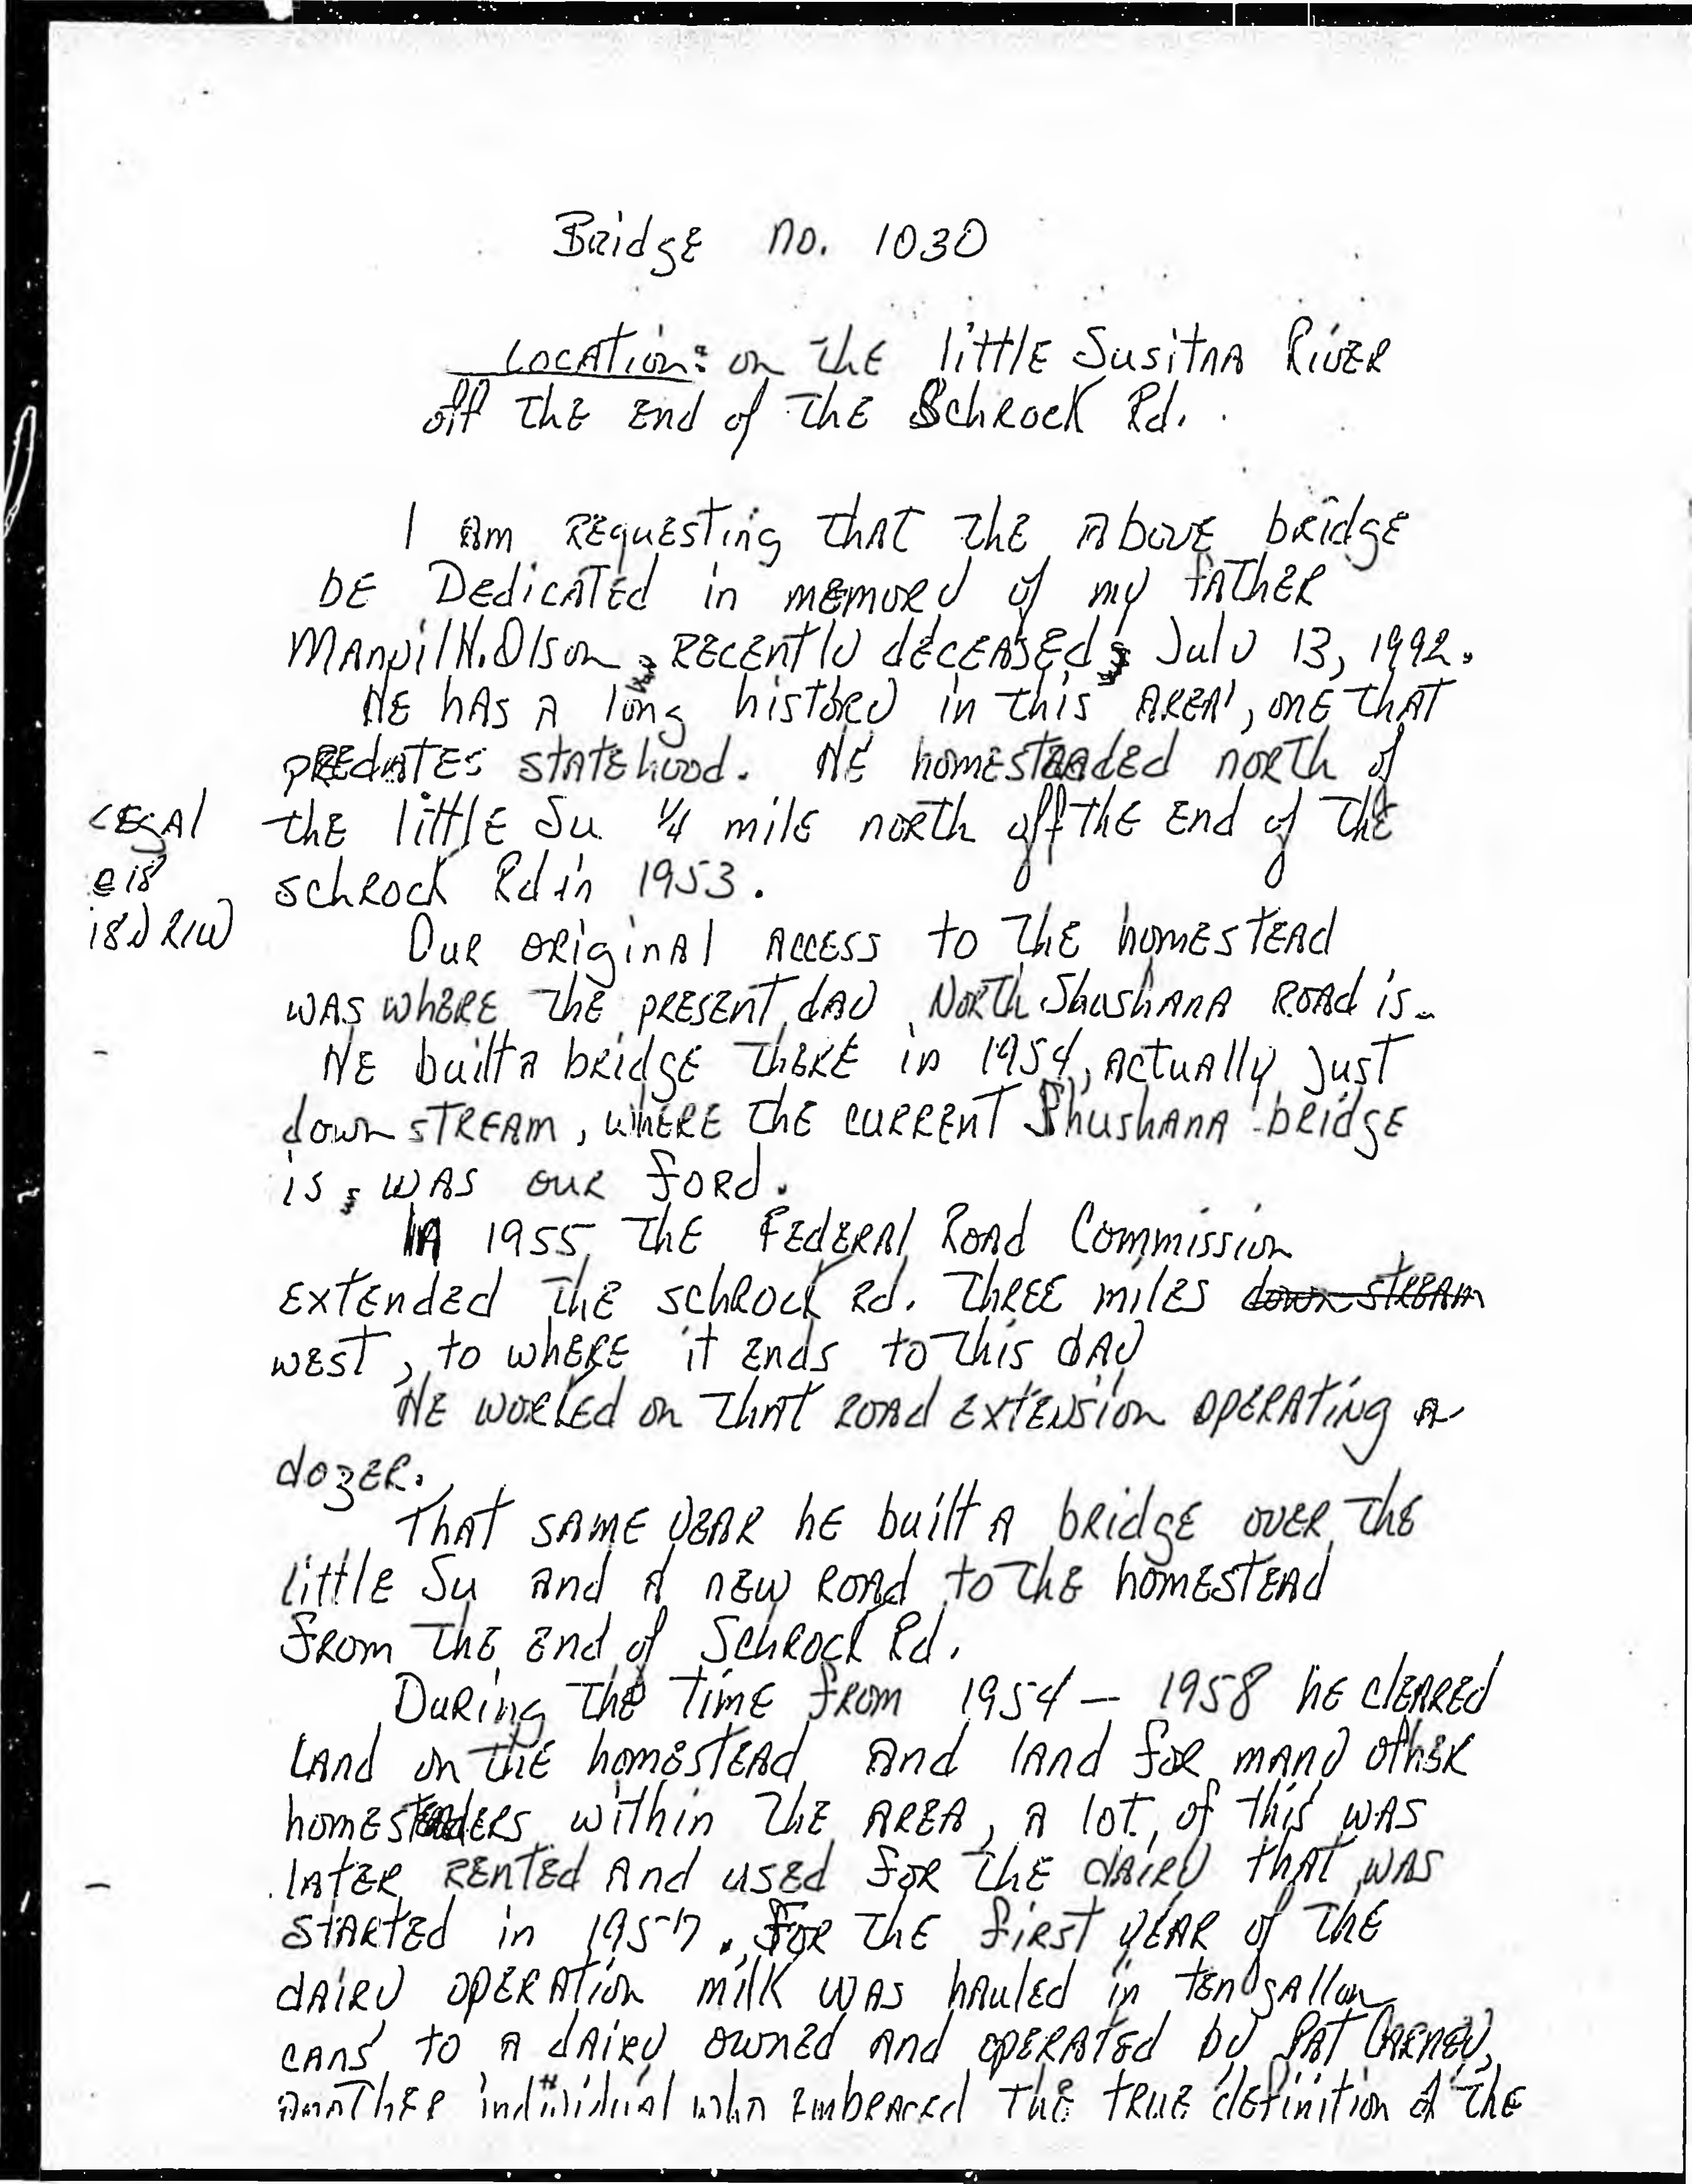 Bridge no. 1030
Location: on the little Susitna River
off the end of the Schrock Rd.
I am requesting that the above bridge
be Dedicated in memory of my father
H. Olson, recently deceased, July 13, 1992.
He has a long history in this area, one that
predates statehood. He homesteaded north of
the little Su 1/4 mile north off the end of the
schrock Rd in 1953.
legal
Our original access to the homestead
was where the present day North Shushana Road is.
He built a bridge there in 1954, actually just
down stream, where the current Shushana bridge
is, was our ford.
In 1955, the Federal Road Commission
extended the schrock Rd. three miles down stream
west, to where it ends to this day
He worked on that road extension operating a
dozer.
That same year he built a bridge over the
little Su and a new road to the homestead
from the end of Schrock Rd.
During the time from 1954 – 1958 he cleared
land on the homestead and land for many other
homesteaders within the area, a lot, of this was
later rented and used for the dairy that was
started in 1957. For the first year of the
dairy operation milk was hauled in ten gallon
cans to a dairy owned and operated by Pat Carney,
another individual who embraced the true definition of the